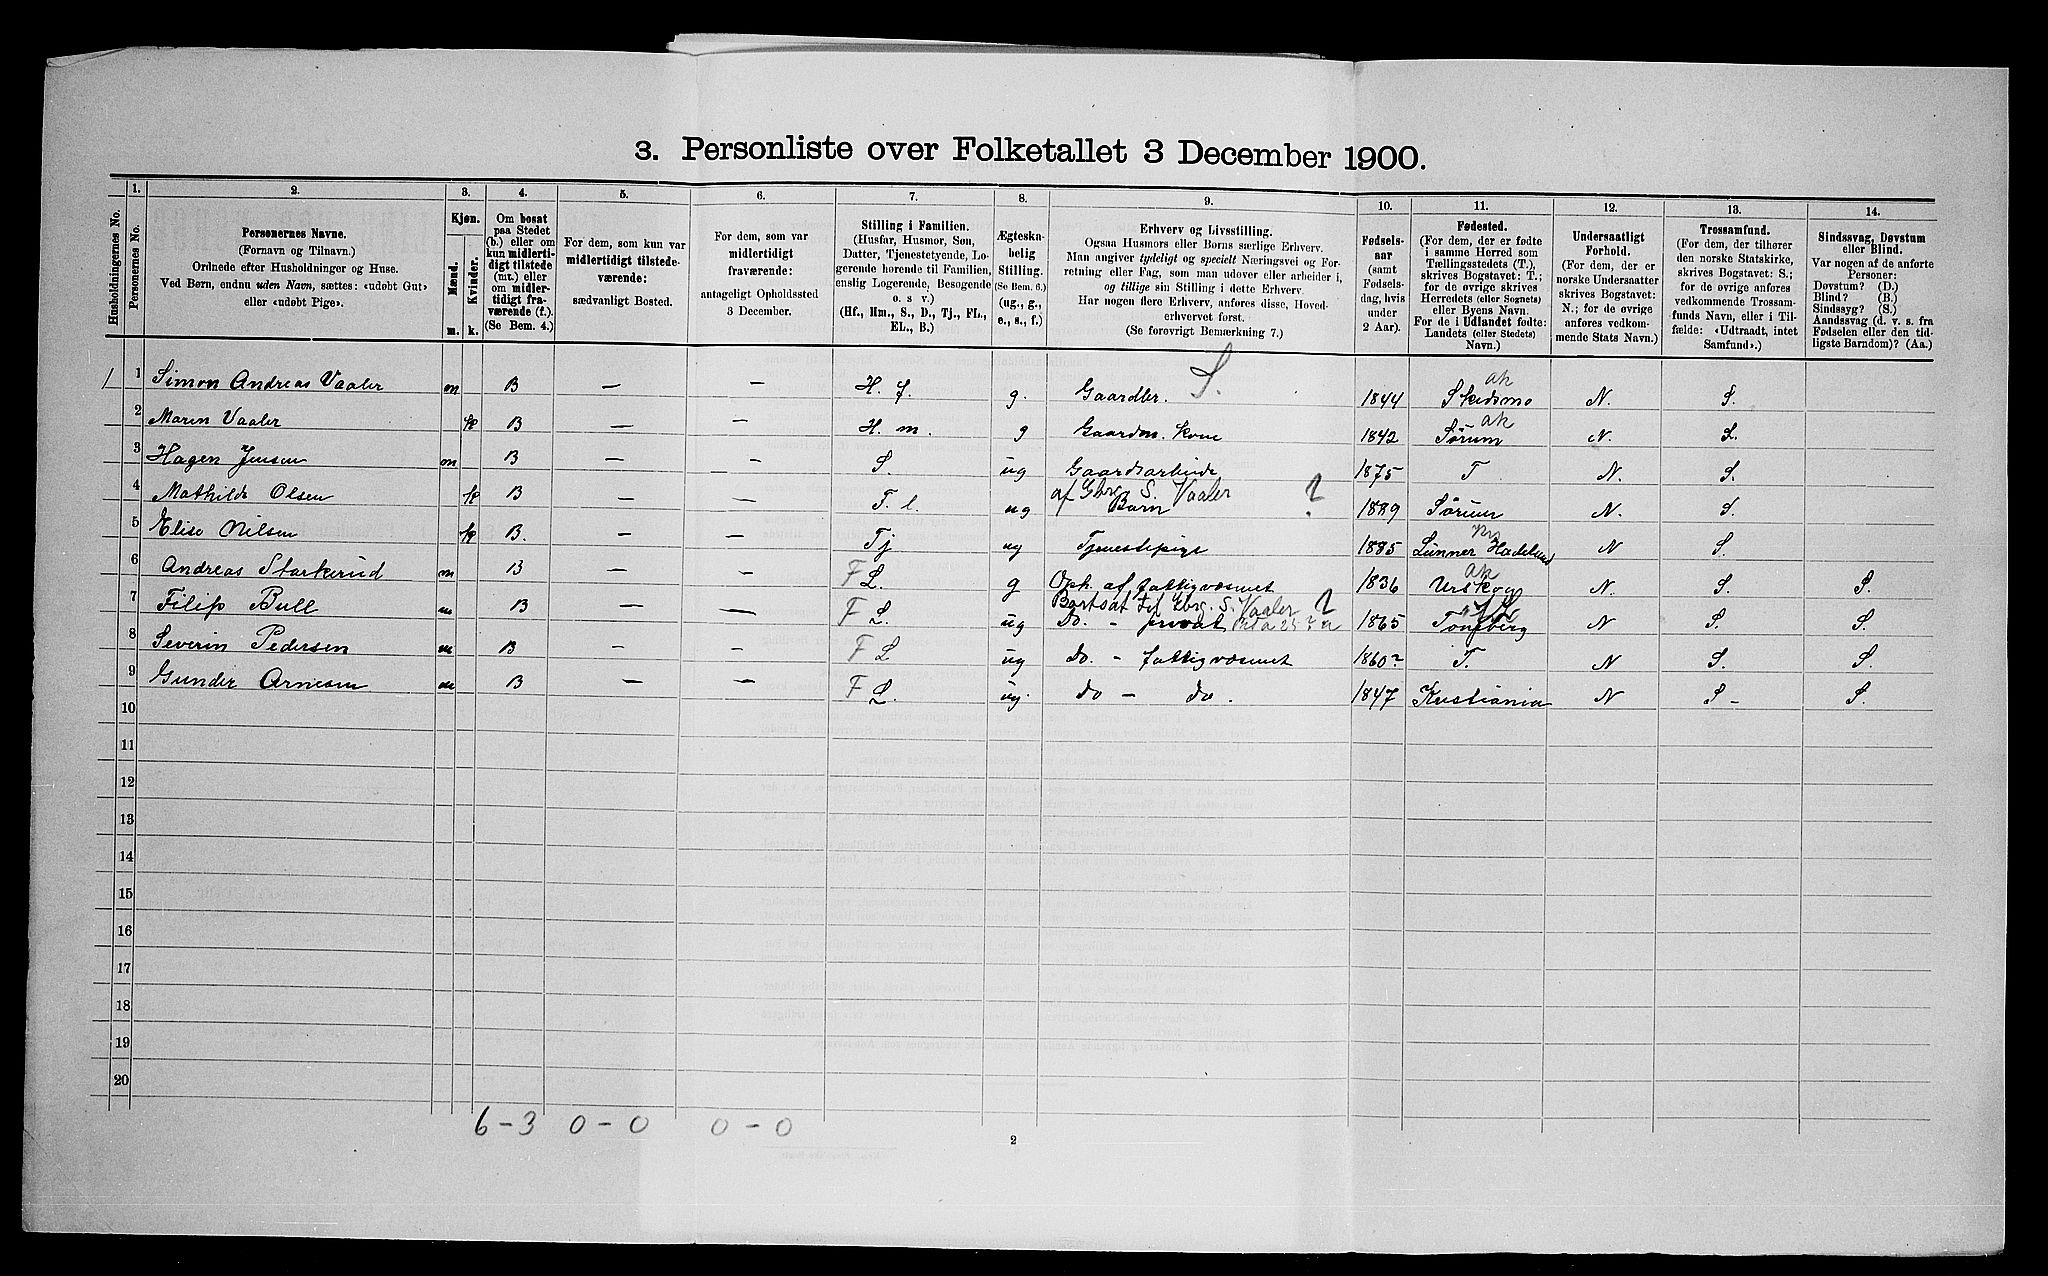 3. Personliste over Folketallet 3 December 1900.
Husholdningernes No.
1. Personernes No.
2. Personernes Navne. (Fornavn og Tilnavn.) Ordnede efter Husholdninger og Huse. Ved Børn, endnu uden Navn, sættes: «udøbt Gut» eller «udøbt Pige».
3. Kjøn. Mænd. m. Kvinder. k.
4. Om bosat paa Stedet (b.) eller om kun midlertidigt tilstede (mt.) eller om midlertidigt fraværende (f.). (Se Bem. 4.)
5. For dem, som kun var midlertidigt tilstedeværende: sædvanligt Bosted.
6. For dem, som var midlertidigt fraværende: antageligt Opholdssted 3 December.
7. Stilling i Familien. (Husfar, Husmor, Søn, Datter, Tjenestetyende, Logerende hørende til Familien, enslig Logerende, Besøgende o. s. v.) (Hf., Hm., S., D., Tj., FL., EL., B.)
8. Ægteskabelig Stilling. (Se Bem. 6.) (ug., g., e., s., f.)
9. Erhverv og Livsstilling. Ogsaa Husmors eller Børns særlige Erhverv. Man angiver tydeligt og specielt Næringsvei og Forretning eller Fag, som man udover eller arbeider i, og tillige sin Stilling i dette Erhverv. Har nogen flere Erhverv, anføres disse, Hovederhvervet først. (Se forøvrigt Bemærkning 7.)
10. Fødselsaar (samt Fødselsdag, hvis under 2 Aar).
11. Fødested. (For dem, der er fødte i samme Herred som Tællingsstedets (T.), skrives Bogstavet: T.; for de øvrige skrives Herredets (eller Sognets) eller Byens Navn. For de i Udlandet fødte: Landets (eller Stedets) Navn.)
12. Undersaatligt Forhold. (For dem, der er norske Undersaatter skrives Bogstavet: N.; for de øvrige anføres vedkommende Stats Navn.)
13. Trossamfund. (For dem, der tilhører den norske Statskirke, skrives Bogstavet: S.; for de øvrige anføres vedkommende Trossamfunds Navn, eller i Tilfælde: «Udtraadt, intet Samfund».)
14. Sindssvag, Døvstum eller Blind. Var nogen af de anførte Personer: Døvstum? (D.) Blind? (B.) Sindssyg? (S.) Aandssvag (d. v. s. fra Fødselen eller den tidligste Barndom)? (Aa.)
S.
/ 1 Simon Andreas Vaaler m B — — H. f. g. Gaardbr. 1844 Skedsmo Ak N. S.
2 Maren Vaaler k B — — H. m. g Gaardm. kone 1842 Sørum Ak N. S.
3 Hagen Jensen m B — — S. ug Gaardsarbeide 1875 T N. S.
af Gbr. S. Vaaler ?
4 Mathilde Olsen k B — — F. l. ug Barn 1889 Sørum N. S.
5 Elise Nilsen k B. — — Tj ug Tjenestepige 1885 Lunner Hadeland N S.
6 Andreas Starkerud m B — — F L. g Oph. af fattigvæsnet 1836 Urskog Ak N. S. S.
Bortsat til Gbr. S. Vaaler ?
7 Filip Bull m B — — F L. ug Do. - privat 1865 Tønsberg N S. S.
8 Severin Pedersen m B — — F L ug Do. - fattigvæsnet 1860? T. N S. S.
9 Gunder Arnesen m B — — F L. ug. do - do. 1847 Kristiania N S - S.
10
11
12
13
14
15
16
17
18
19
20
6 - 3 0 - 0 0 - 0
2